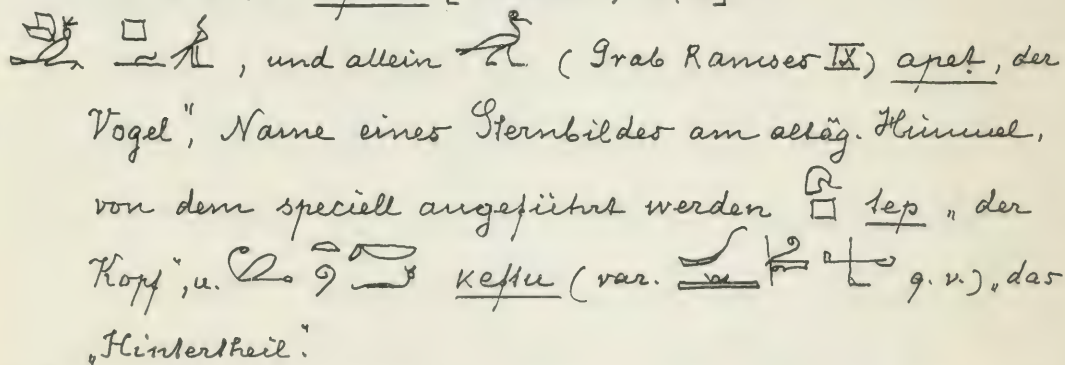 , und allein (Grab Ramses IX) apet, der
Vogel", Name eines Sternbildes am altäg. Himmel,
von dem speciell angeführt werden tep „der
Kopf", u. (var. q. v.) „das
„Hintertheil".